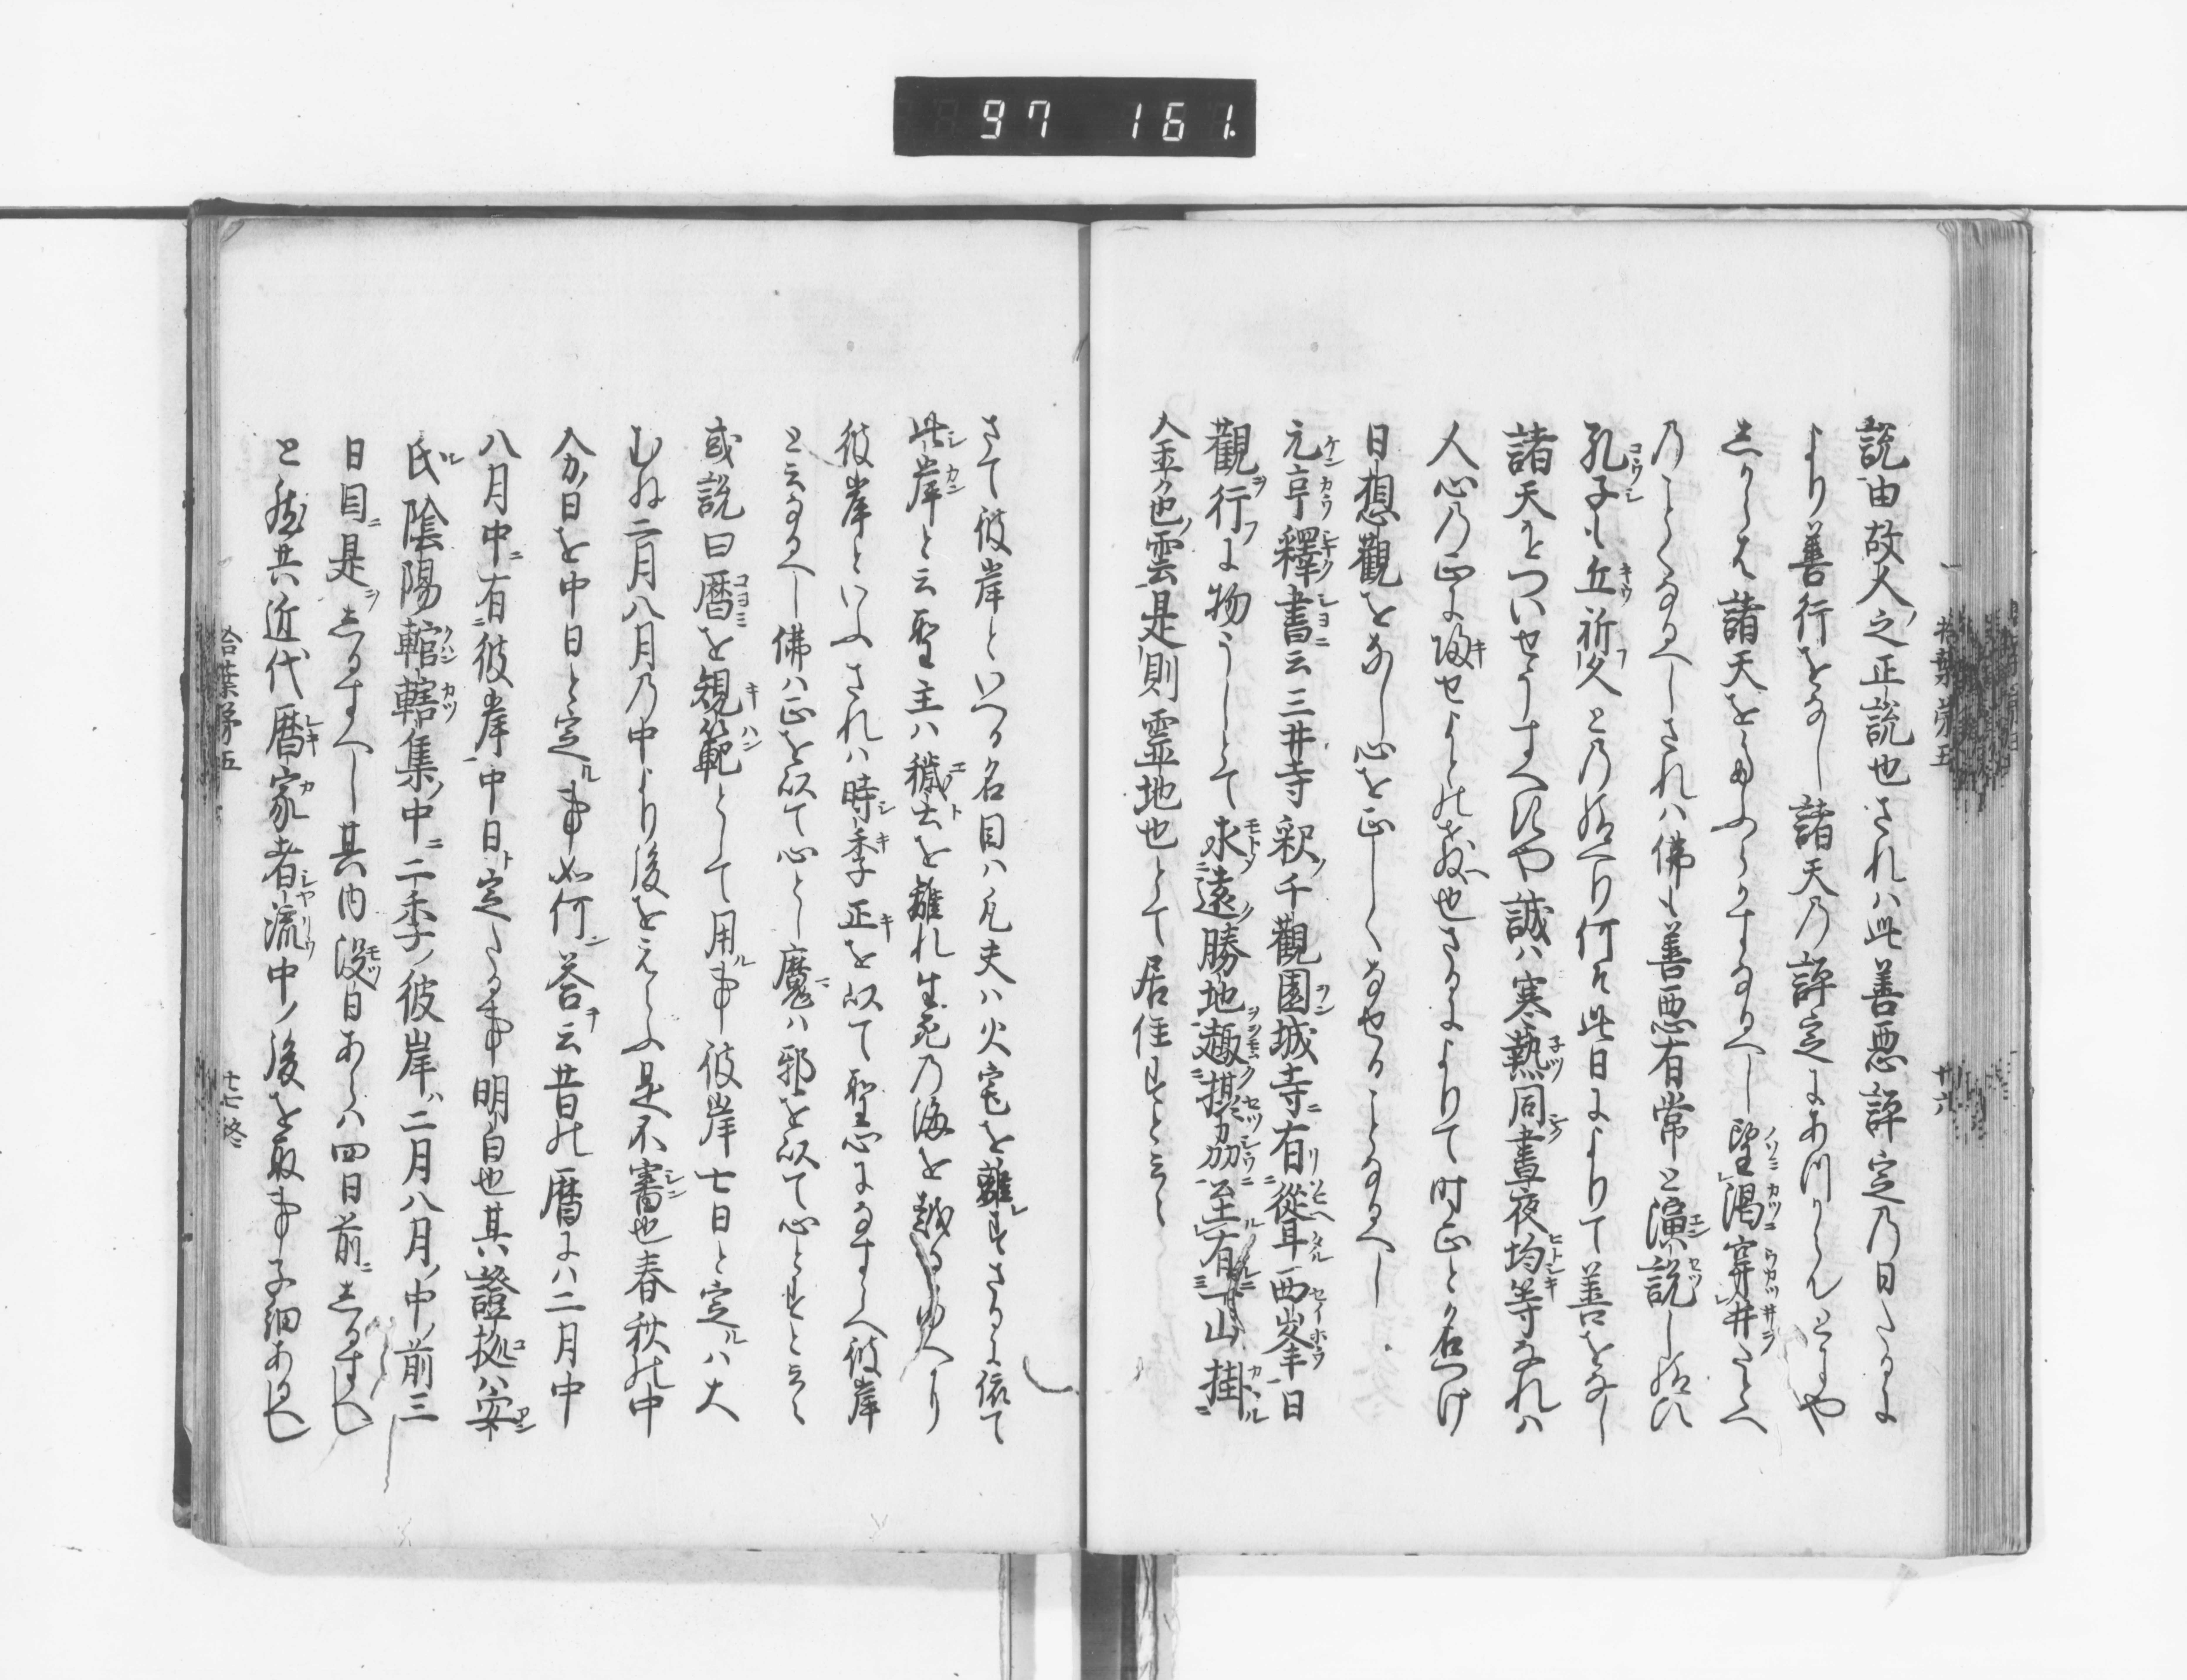 97 161
説由故人之正説也されハ此善悪評定乃日たるに
より善行をなし諸天乃評定にあつからんとにや
しからハ諸天を
なるへし望渇穿井たとへ
乃ことくなるへしされハ佛も善悪有常と演説し給ひ
孔子も丘祈久と乃給へり何そ此日によりて善をなし
諸天をついせうすへけんや誠ハ寒熱同晝夜均等なれハ
人心乃正に帰せよとの教也さるによりて時正とハ名つけ
日想觀をなし心を正しくなせることなるへし
元亨釋書云三井寺釈千觀園城寺有從耳西峯日
觀行に物うしとて求遠勝地趣摂劦至有山掛
金色雲是則霊地也とて居住すと云々
さて彼岸といへる名目ハ凡夫ハ火宅を離すさるに依て
此岸と云聖主ハ穢土を離れ生死乃海を越るゆへり
彼岸といふされハ時季正を以て聖心になすらへ彼岸
と云なるへし佛ハ正を以て心とし魔ハ邪を以て心とすと云々
或説曰暦を規範として用事彼岸七日と定ハ大
むね二月八月乃中より後をえらふ是不審也春秋の中
分日を中日と定事如何答云昔の暦にハ二月中
八月中有彼岸中日定たる事明白也其證拠ハ安
氏陰陽輨轄集中二季ノ彼岸ハ二月八月ノ中ノ前三
日目是しるすへし其内没日あらハ四日前しるすへし
と然共近代暦家者流中ノ後を取事子細あるへし
拾葉第五
十六
拾葉第五
廿七終